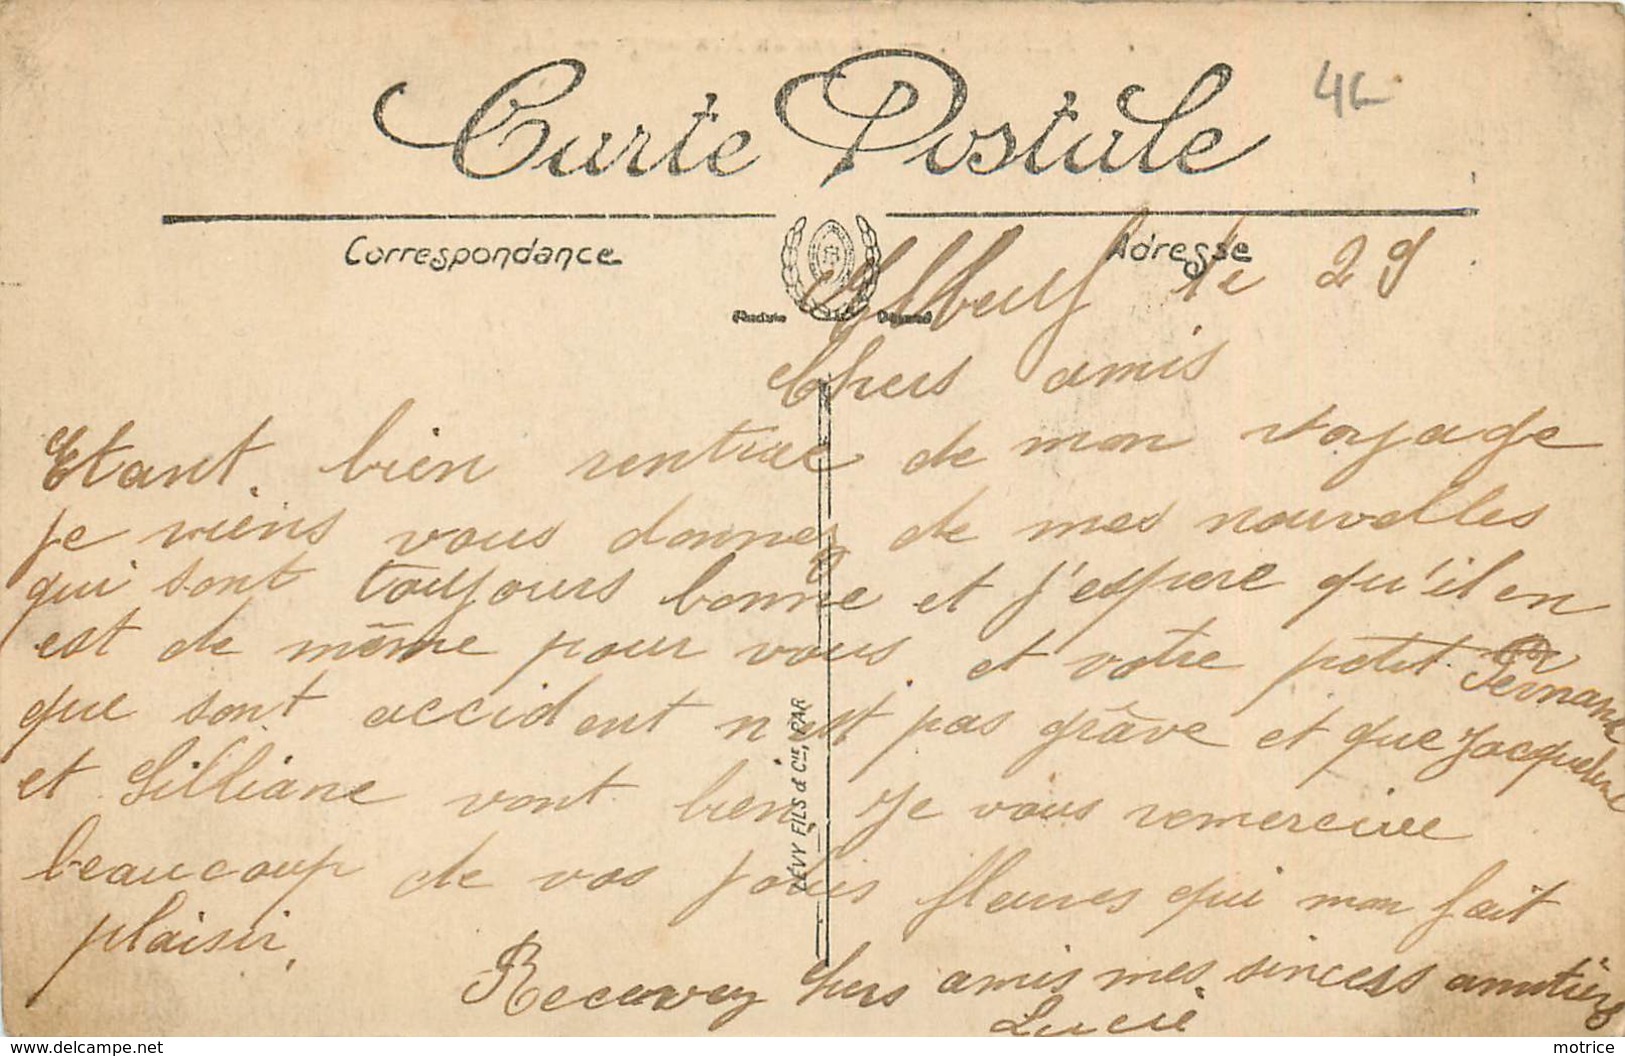 4€
Carte Postale
Correspondance
Adresse
Elbeuf le 29
Chers amis
Etant bien rentrée de mon voyage
je viens vous donnez de mes nouvelles
qui sont toujours bonne et j'espere qu'il en
est de même pour vous et votre petit Fernand
que sont accident n'est pas grâve et que Jacqueline
et Lilliane vont bien. Je vous remerciee
beaucoup de vos jolies fleures qui mon fait
plaisir.
Recevez chers amis mes sincess amitiers
Lucie
LÉVY FILS & Cie, PAR
motrice